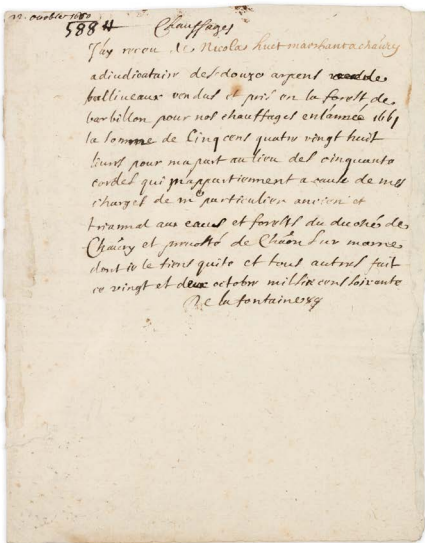 22. octobre 1660
588 ₶ Chauffages
J'ay receu de Nicolas huet marchant a chaury
adiudicataire des douze arpens de
balliueaux vendus et pris en la forest de
barbillon pour nos chauffages en lannee 1661
la somme de Cinq cens quatre vingt huit
liures pour ma part au lieu des cinquante
cordes qui m'appartiennent a cause de mes
charges de me particulier ancien et
triannal aux eaues et forests du duché de
Chaury et preuosté de Chaôn sur marne
dont ie le tiens quite et tous autres fait
ce vingt et deux octobre mil six cens soixante
De la fontaine